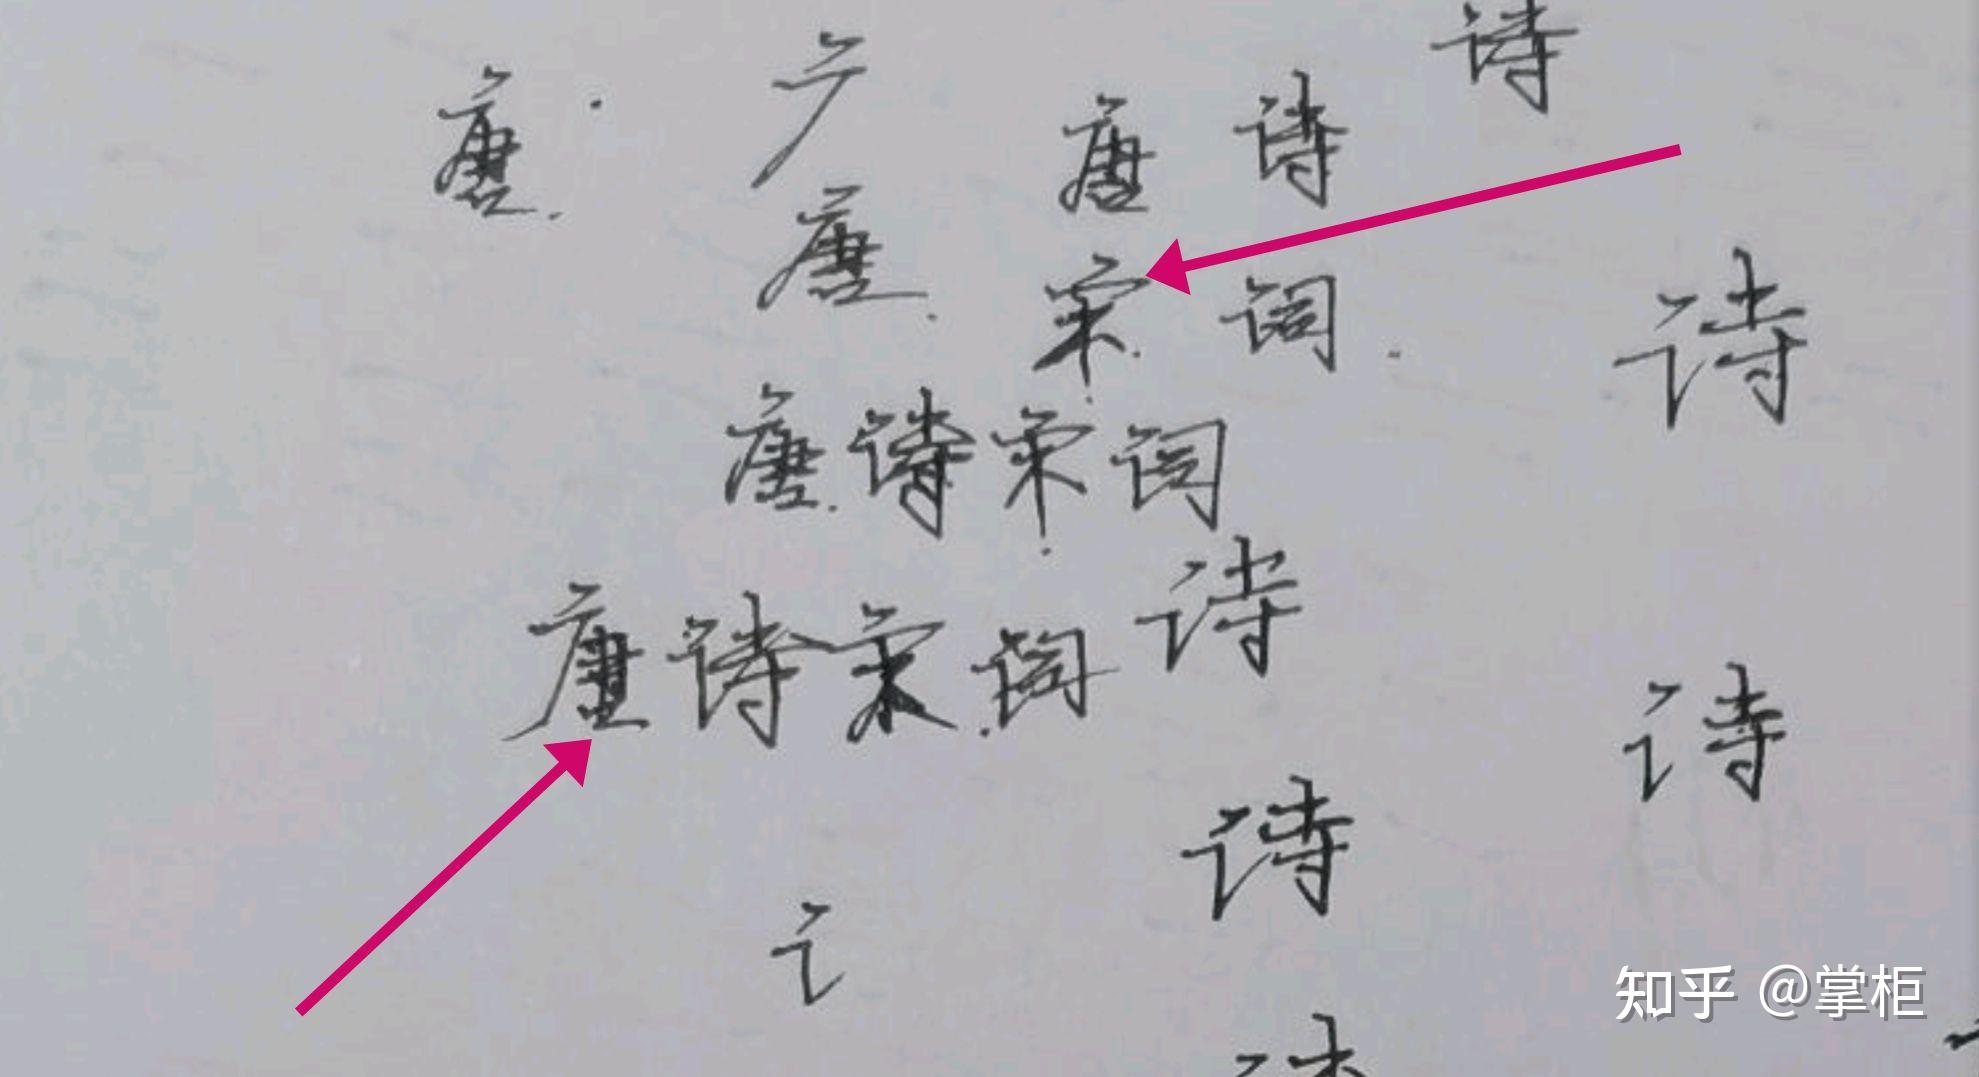 诗
唐 广 唐 诗
唐 宋 词 诗
唐诗宋词
唐诗宋词 诗
诗
诗
讠
知乎 @掌柜